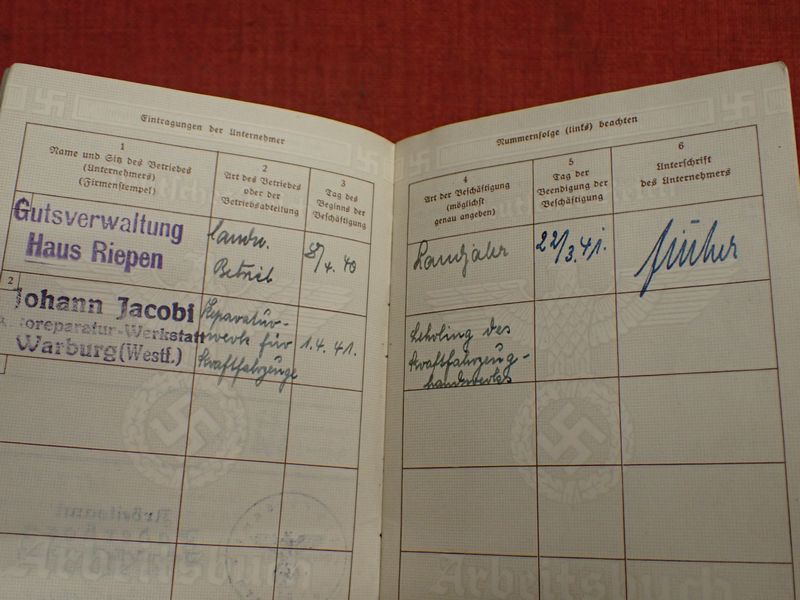 Eintragungen der Unternehmer
1
Name und Sitz des Betriebes
(Unternehmers)
(Firmenstempel)
2
Art des Betriebes
oder der
Betriebsabteilung
3
Tag des
Beginns der
Beschäftigung
Gutsverwaltung
Haus Riepen
Landw.
Betrieb
8/4. 40
2
Johann Jacobi
oreparatur-Werkstatt
Warburg (Westf.)
Reparatur-
werk für
Kraftfahrzeuge
1. 4. 41.
Arbeitsamt
Arbeitsbuch
Nummernfolge (links) beachten
4
Art der Beschäftigung
(möglichst
genau angeben)
5
Tag der
Beendigung der
Beschäftigung
6
Unterschrift
des Unternehmers
Landjahr
22/3. 41.
Lehrling des
Kraftfahrzeug-
handwerks
Arbeitsbuch